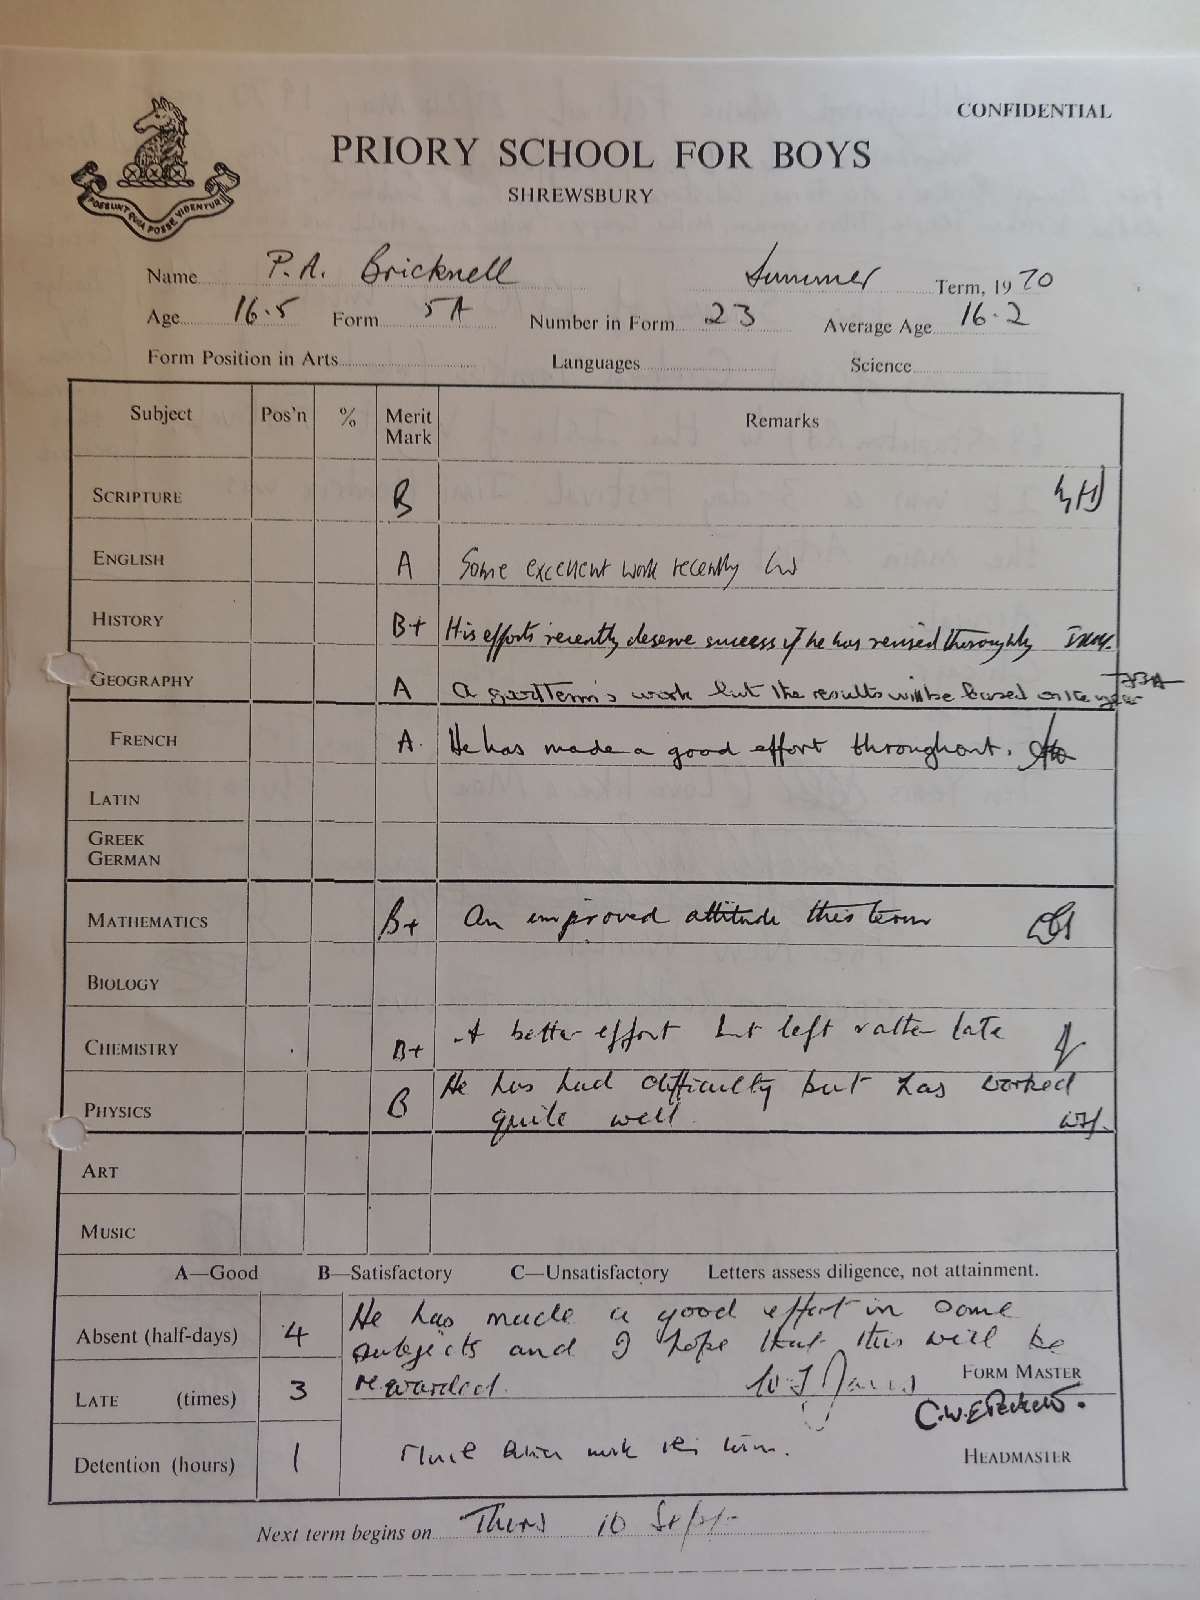 CONFIDENTIAL
PRIORY SCHOOL FOR BOYS
SHREWSBURY
POSSUNT QUIA POSSE VIDENTUR
Name P.A. Bricknell Summer Term, 1970
Age 16.5 Form 5A Number in Form 23 Average Age 16.2
Form Position in Arts Languages Science
Subject Pos'n % Merit Mark Remarks
SCRIPTURE B
ENGLISH A Some excellent work recently
HISTORY B+ His efforts recently deserve success if he has revised thoroughly
GEOGRAPHY A A good term's work but the results will be based on the year
FRENCH A. He has made a good effort throughout.
LATIN
GREEK
GERMAN
MATHEMATICS B+ An improved attitude this term
BIOLOGY
CHEMISTRY B+ A better effort but left rather late
PHYSICS B He has had difficulty but has worked
quite well
ART
MUSIC
A—Good B—Satisfactory C—Unsatisfactory Letters assess diligence, not attainment.
Absent (half-days) 4 He has made a good effort in some
subjects and I hope that this will be
rewarded. FORM MASTER
LATE (times) 3
Detention (hours) 1 work this term. HEADMASTER
Next term begins on Thurs 10 Sept